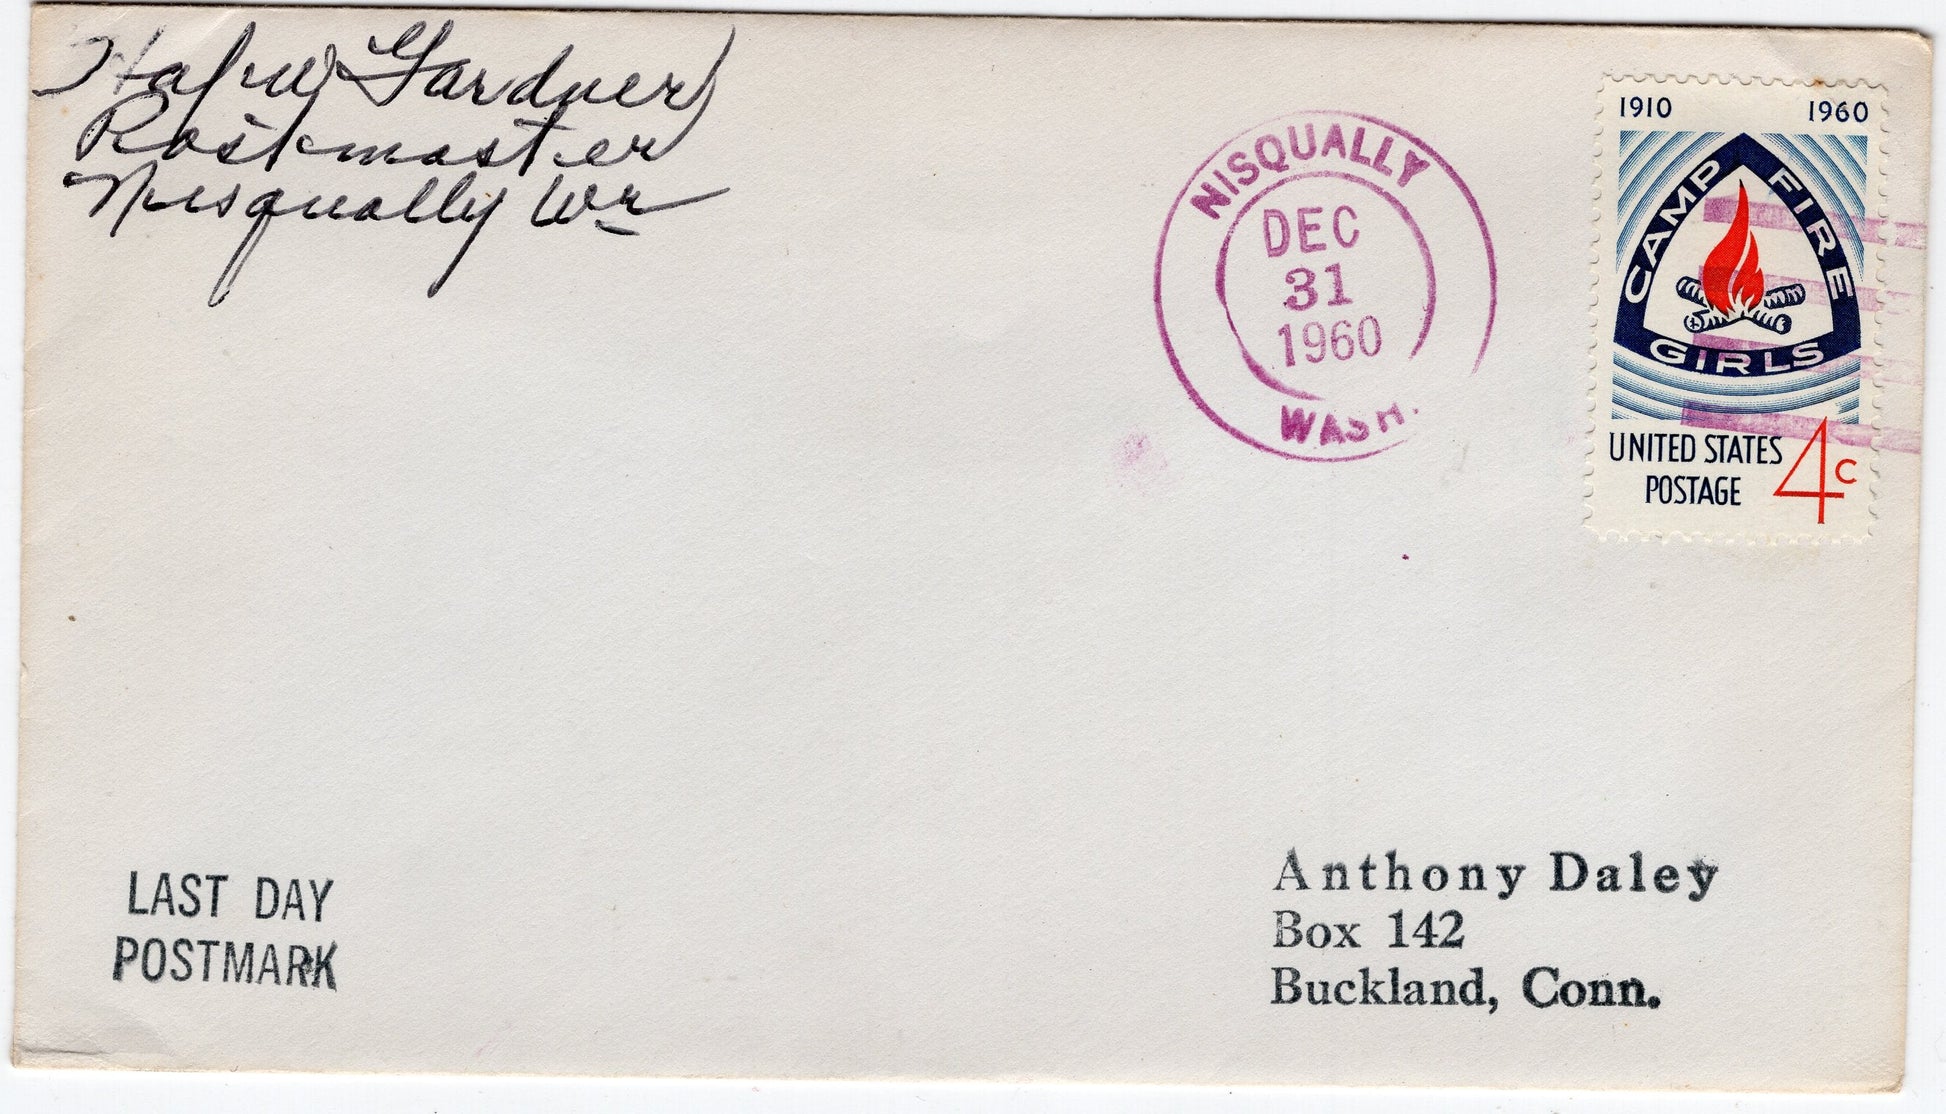 Gardner
Postmaster
Nisqually Wn
NISQUALLY
DEC
31
1960
WASH.
1910 1960
CAMP FIRE
GIRLS
UNITED STATES
POSTAGE
4c
LAST DAY
POSTMARK
Anthony Daley
Box 142
Buckland, Conn.